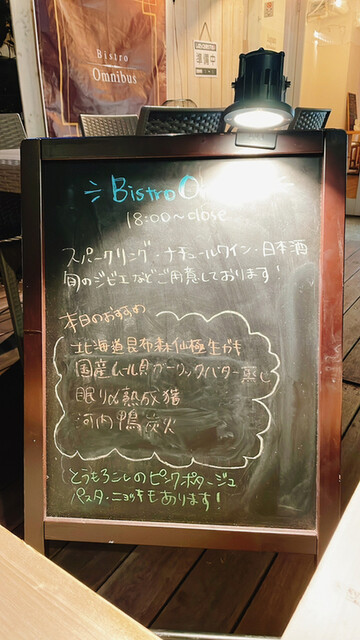 Bistro
Omnibus
準備中
Bistro O
18:00~close
スパークリング・ナチュールワイン・日本酒
旬のジビエなどご用意しております!
本日のおすすめ
北海道昆布森仙極生ガキ
国産ムール貝ガーリックバター蒸し
眠りα熟成猪
河内鴨炭火
とうもろこしのピンクポタージュ
パスタ・ニョッキもあります!